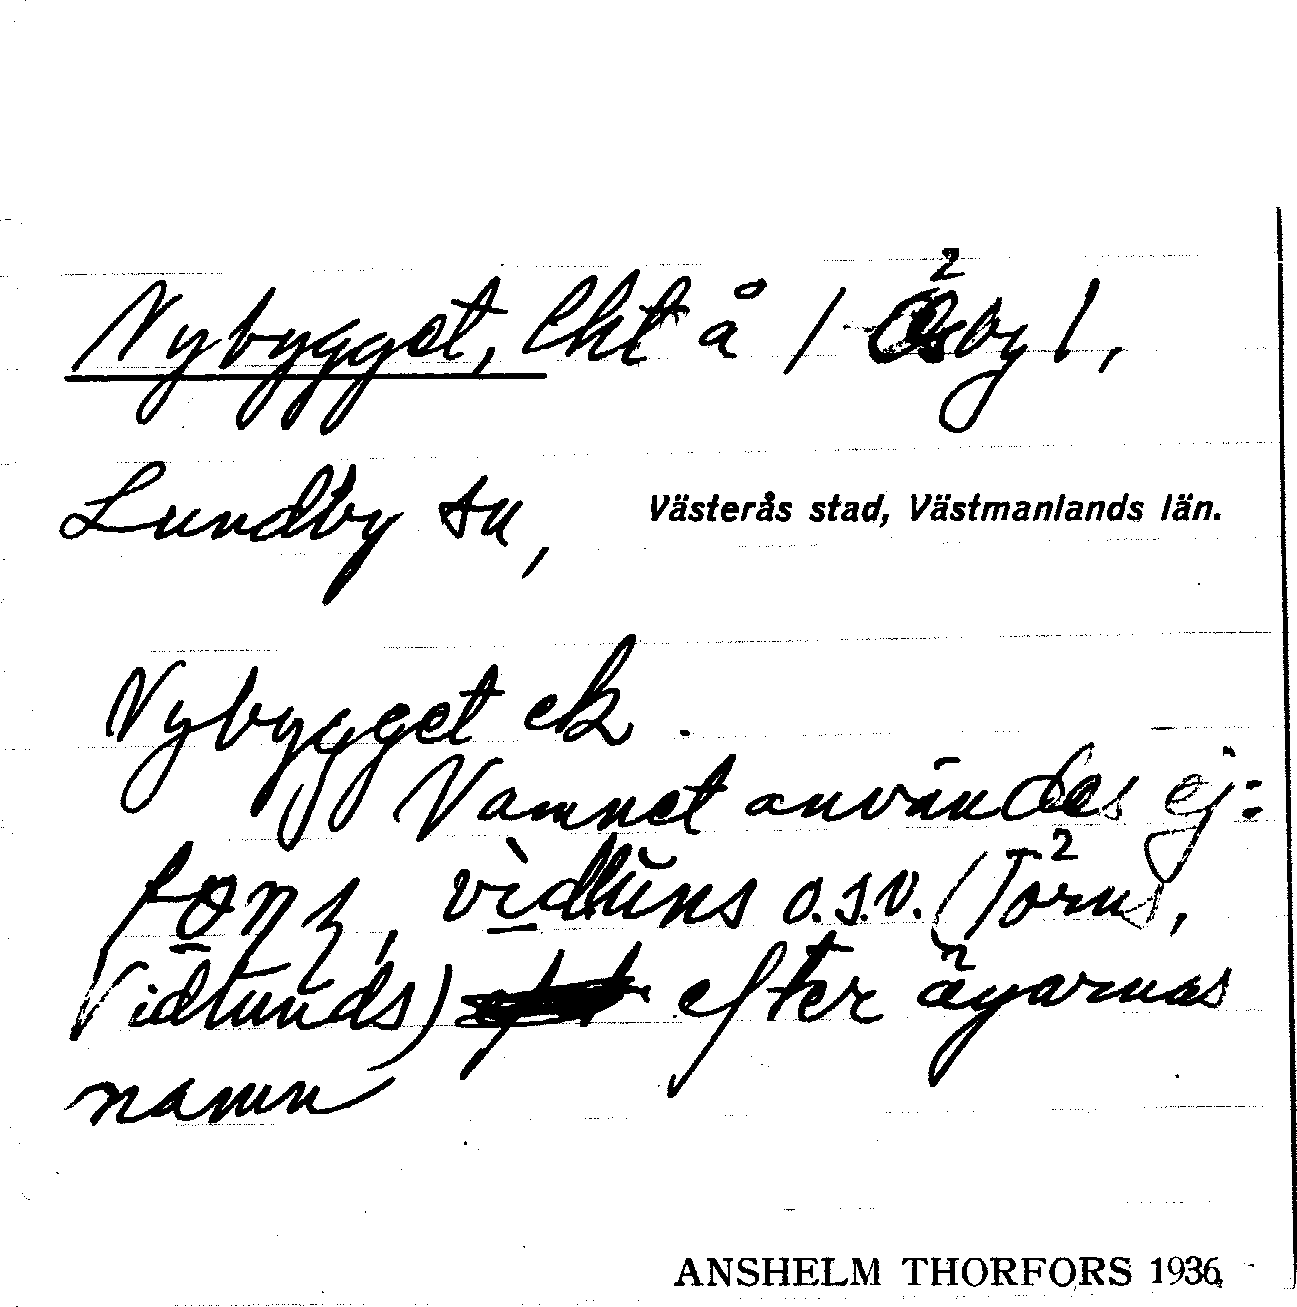 Nybygget, lht å / Åsby² /,
Lundby sn, Västerås stad, Västmanlands län.
Nybygget ek.
Namnet användes ej:
vidluns o.s.v. (Törns²,
Vidlunds) efter ägarnas
namn
ANSHELM THORFORS 1936